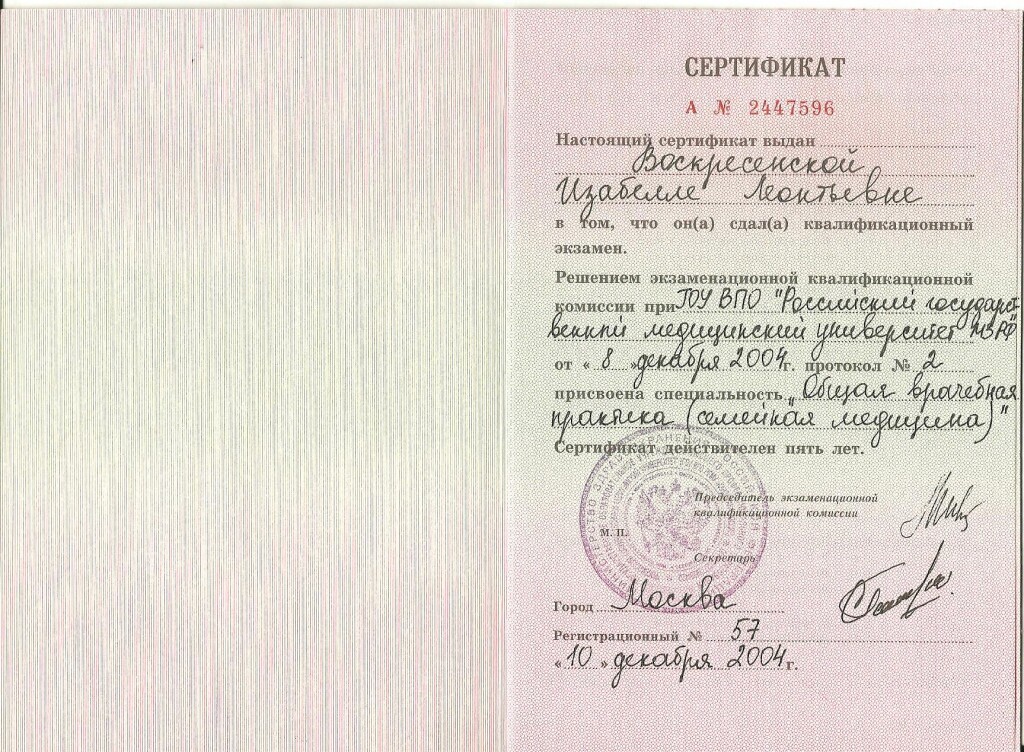 СЕРТИФИКАТ
А № 2447596
Настоящий сертификат выдан
Воскресенской
Изабелле Леонтьевне
в том, что он(а) сдал(а) квалификационный
экзамен.
Решением экзаменационной квалификационной
комиссии при ГОУ ВПО "Российский государст-
венный медицинский университет МЗ РФ"
от « 8 » декабря 2004 г. протокол № 2
присвоена специальность „Общая врачебная
практика (семейная медицина)"
Сертификат действителен пять лет.
Председатель экзаменационной
квалификационной комиссии
М. П.
Секретарь
Город Москва
Регистрационный № 57
« 10 » декабря 2004 г.